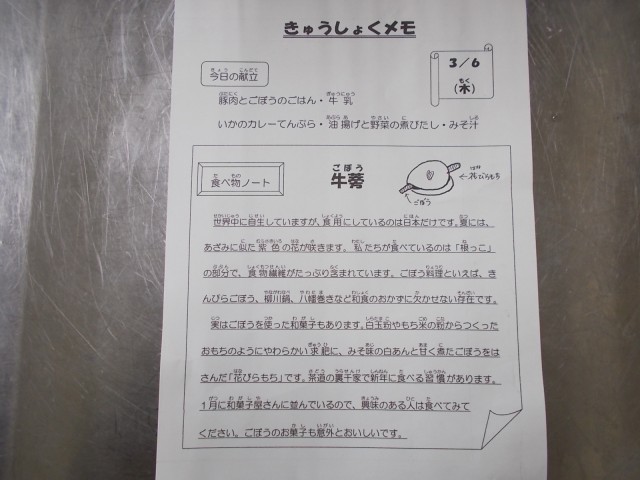 きゅうしょくメモ
今日の献立
3／6
(木)
豚肉とごぼうのごはん・牛乳
いかのカレーてんぷら・油揚げと野菜の煮びたし・みそ汁
食べ物ノート
牛蒡
ごぼう
花びらもち
ごぼう
世界中に自生していますが、食用にしているのは日本だけです。夏には、
あざみに似た紫色の花が咲きます。私たちが食べているのは「根っこ」
の部分で、食物繊維がたっぷり含まれています。ごぼう料理といえば、き
んぴらごぼう、柳川鍋、八幡巻きなど和食のおかずに欠かせない存在です。
実はごぼうを使った和菓子もあります。白玉粉やもち米の粉からつくった
おもちのようにやわらかい求肥に、みそ味の白あんと甘く煮たごぼうをは
さんだ「花びらもち」です。茶道の裏千家で新年に食べる習慣があります。
１月に和菓子屋さんに並んでいるので、興味のある人は食べてみて
ください。ごぼうのお菓子も意外とおいしいです。